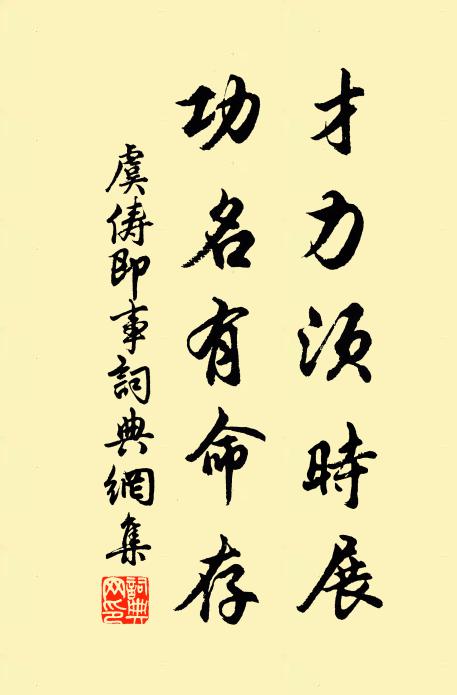 才力須時展
功名有命存
虞儔即事詞典網集
詞典網印